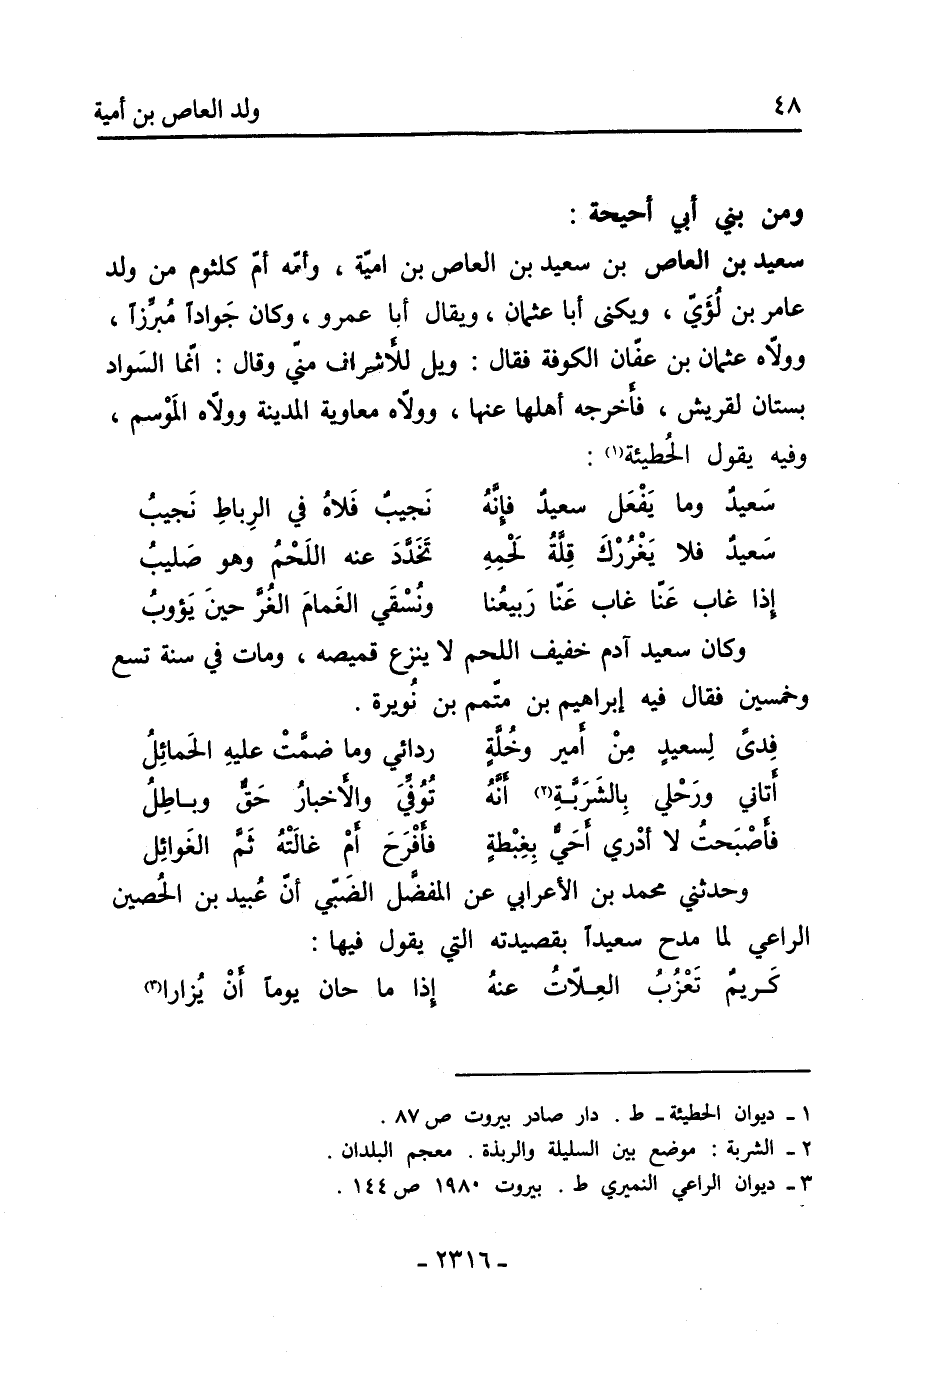 ٤٨ ولد العاص بن أمية
ومن بني أبي أحيحة :
سعيد بن العاص بن سعيد بن العاص بن اميّة ، وأمّه أمّ كلثوم من ولد
عامر بن لُؤَيّ ، ويكنى أبا عثمان ، ويقال أبا عمرو ، وكان جَواداً مُبرِّزاً ،
وولّاه عثمان بن عفّان الكوفة فقال : ويل للأشراف منيّ وقال : انّما السَواد
بستان لقريش ، فأخرجه أهلها عنها ، وولّاه معاوية المدينة وولّاه المَوْسم ،
وفيه يقول الحُطيئة(١) :
سَعيدٌ وما يَفْعَل سعيدٌ فإنَّهُ نَجيبٌ فَلاهُ في الرِباطِ نَجيبُ
سَعيدٌ فلا يَغْرُرْكَ قِلَّةُ لَحْمِهِ تَخَدَّدَ عنه اللَحْمُ وهو صَليبُ
إذا غاب عَنّا غاب عَنّا رَبيعُنا ونُسْقَي الغَمامَ الغُرَّ حينَ يَؤوبُ
وكان سعيد آدم خفيف اللحم لا ينزع قميصه ، ومات في سنة تسع
وخمسين فقال فيه إبراهيم بن متّمم بن نُويرة .
فِدىً لِسعيدٍ مِنْ أَمير وخُلَّةٍ ردائي وما ضمَّتْ عليهِ الحَمائِلُ
أَتاني ورَحْلي بِالشَرَبَّةِ(٢) أَنَّهُ تُوُفِّيَ والأَخبارُ حَقٌّ وباطِلُ
فأَصْبَحتُ لا أدْري أَحَيٌّ بِغِبْطةٍ فأَفْرَحَ أَمْ غالَتْهُ ثَمَّ الغَوائِل
وحدثني محمد بن الأعرابي عن المفضَّل الضَبّي أنّ عُبيد بن الحُصين
الراعي لما مدح سعيداً بقصيدته التي يقول فيها :
كَريمٌ تَعْزُبُ العِلّاتُ عنهُ إذا ما حان يوماً أَنْ يُزارا(٣)
١ ـ ديوان الحطيئة ـ ط . دار صادر بيروت ص ٨٧ .
٢ ـ الشربة : موضع بين السليلة والربذة . معجم البلدان .
٣ ـ ديوان الراعي النميري ط . بيروت ١٩٨٠ ص ١٤٤ .
ـ ٢٣١٦ ـ